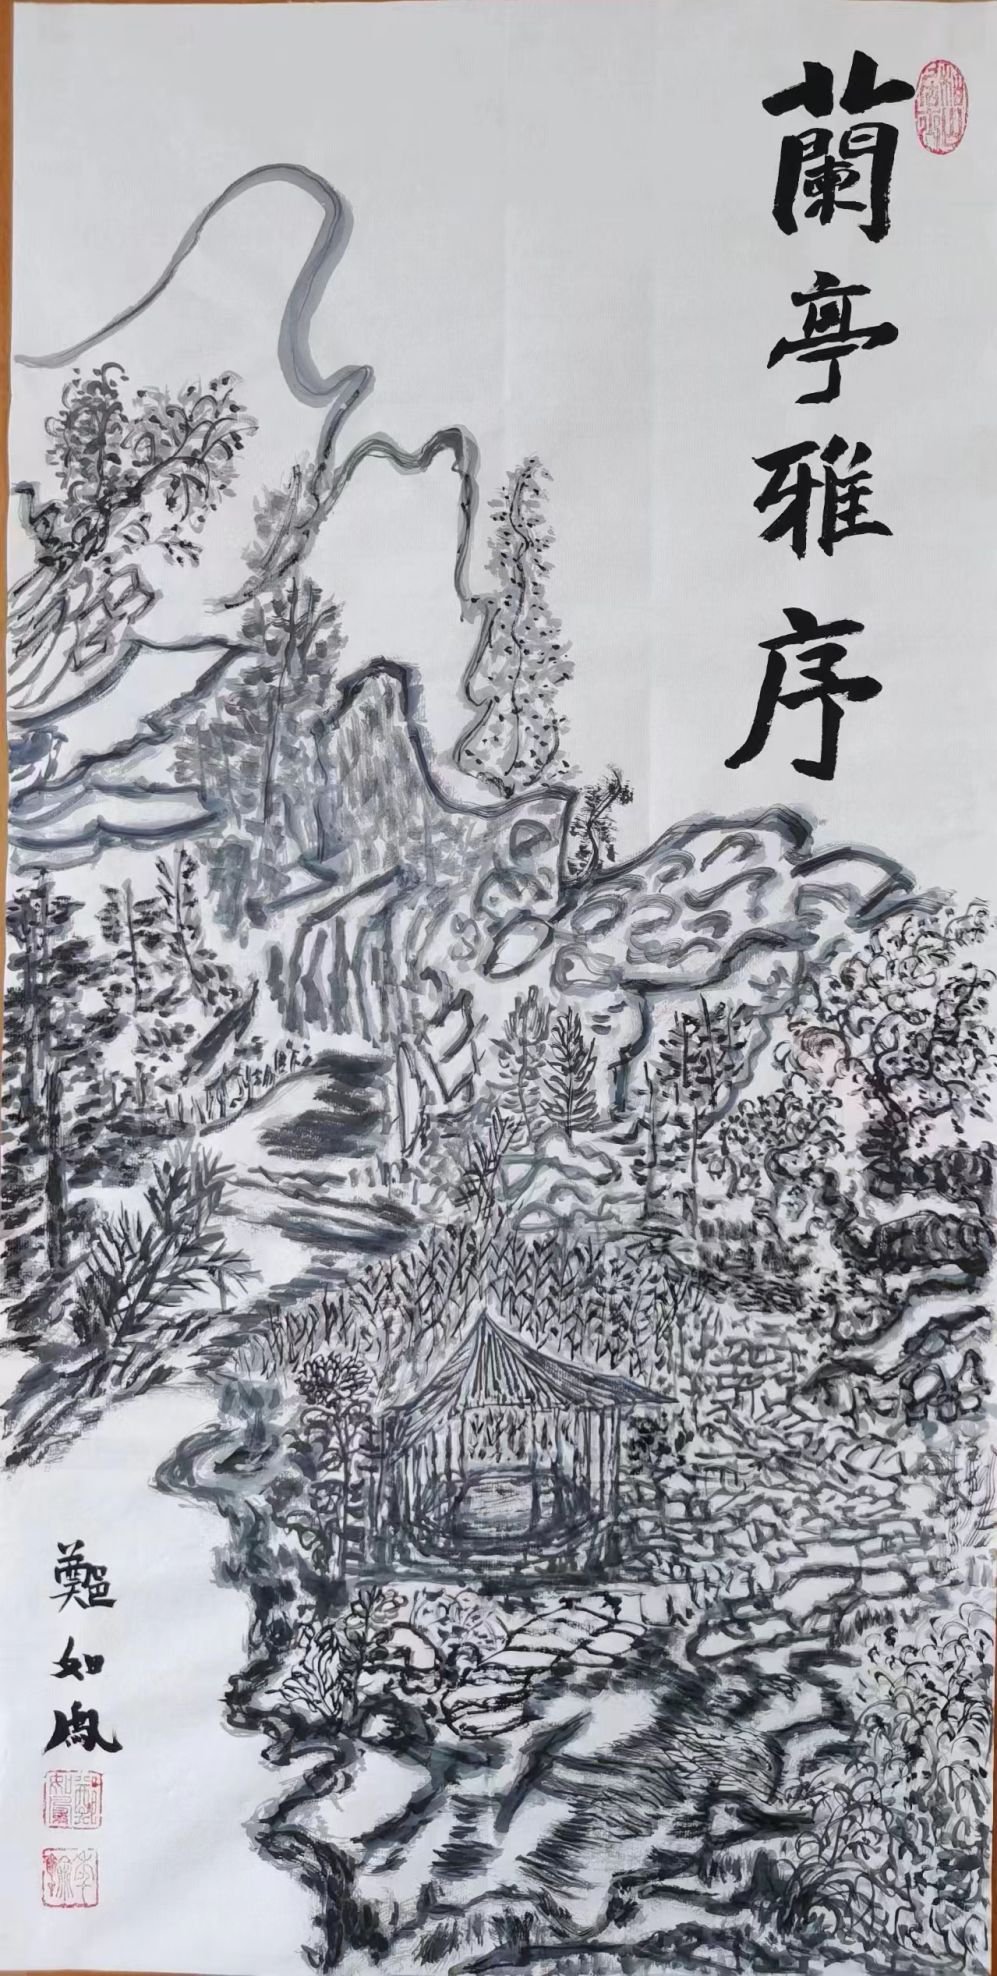 蘭亭雅序
鄭如鳳